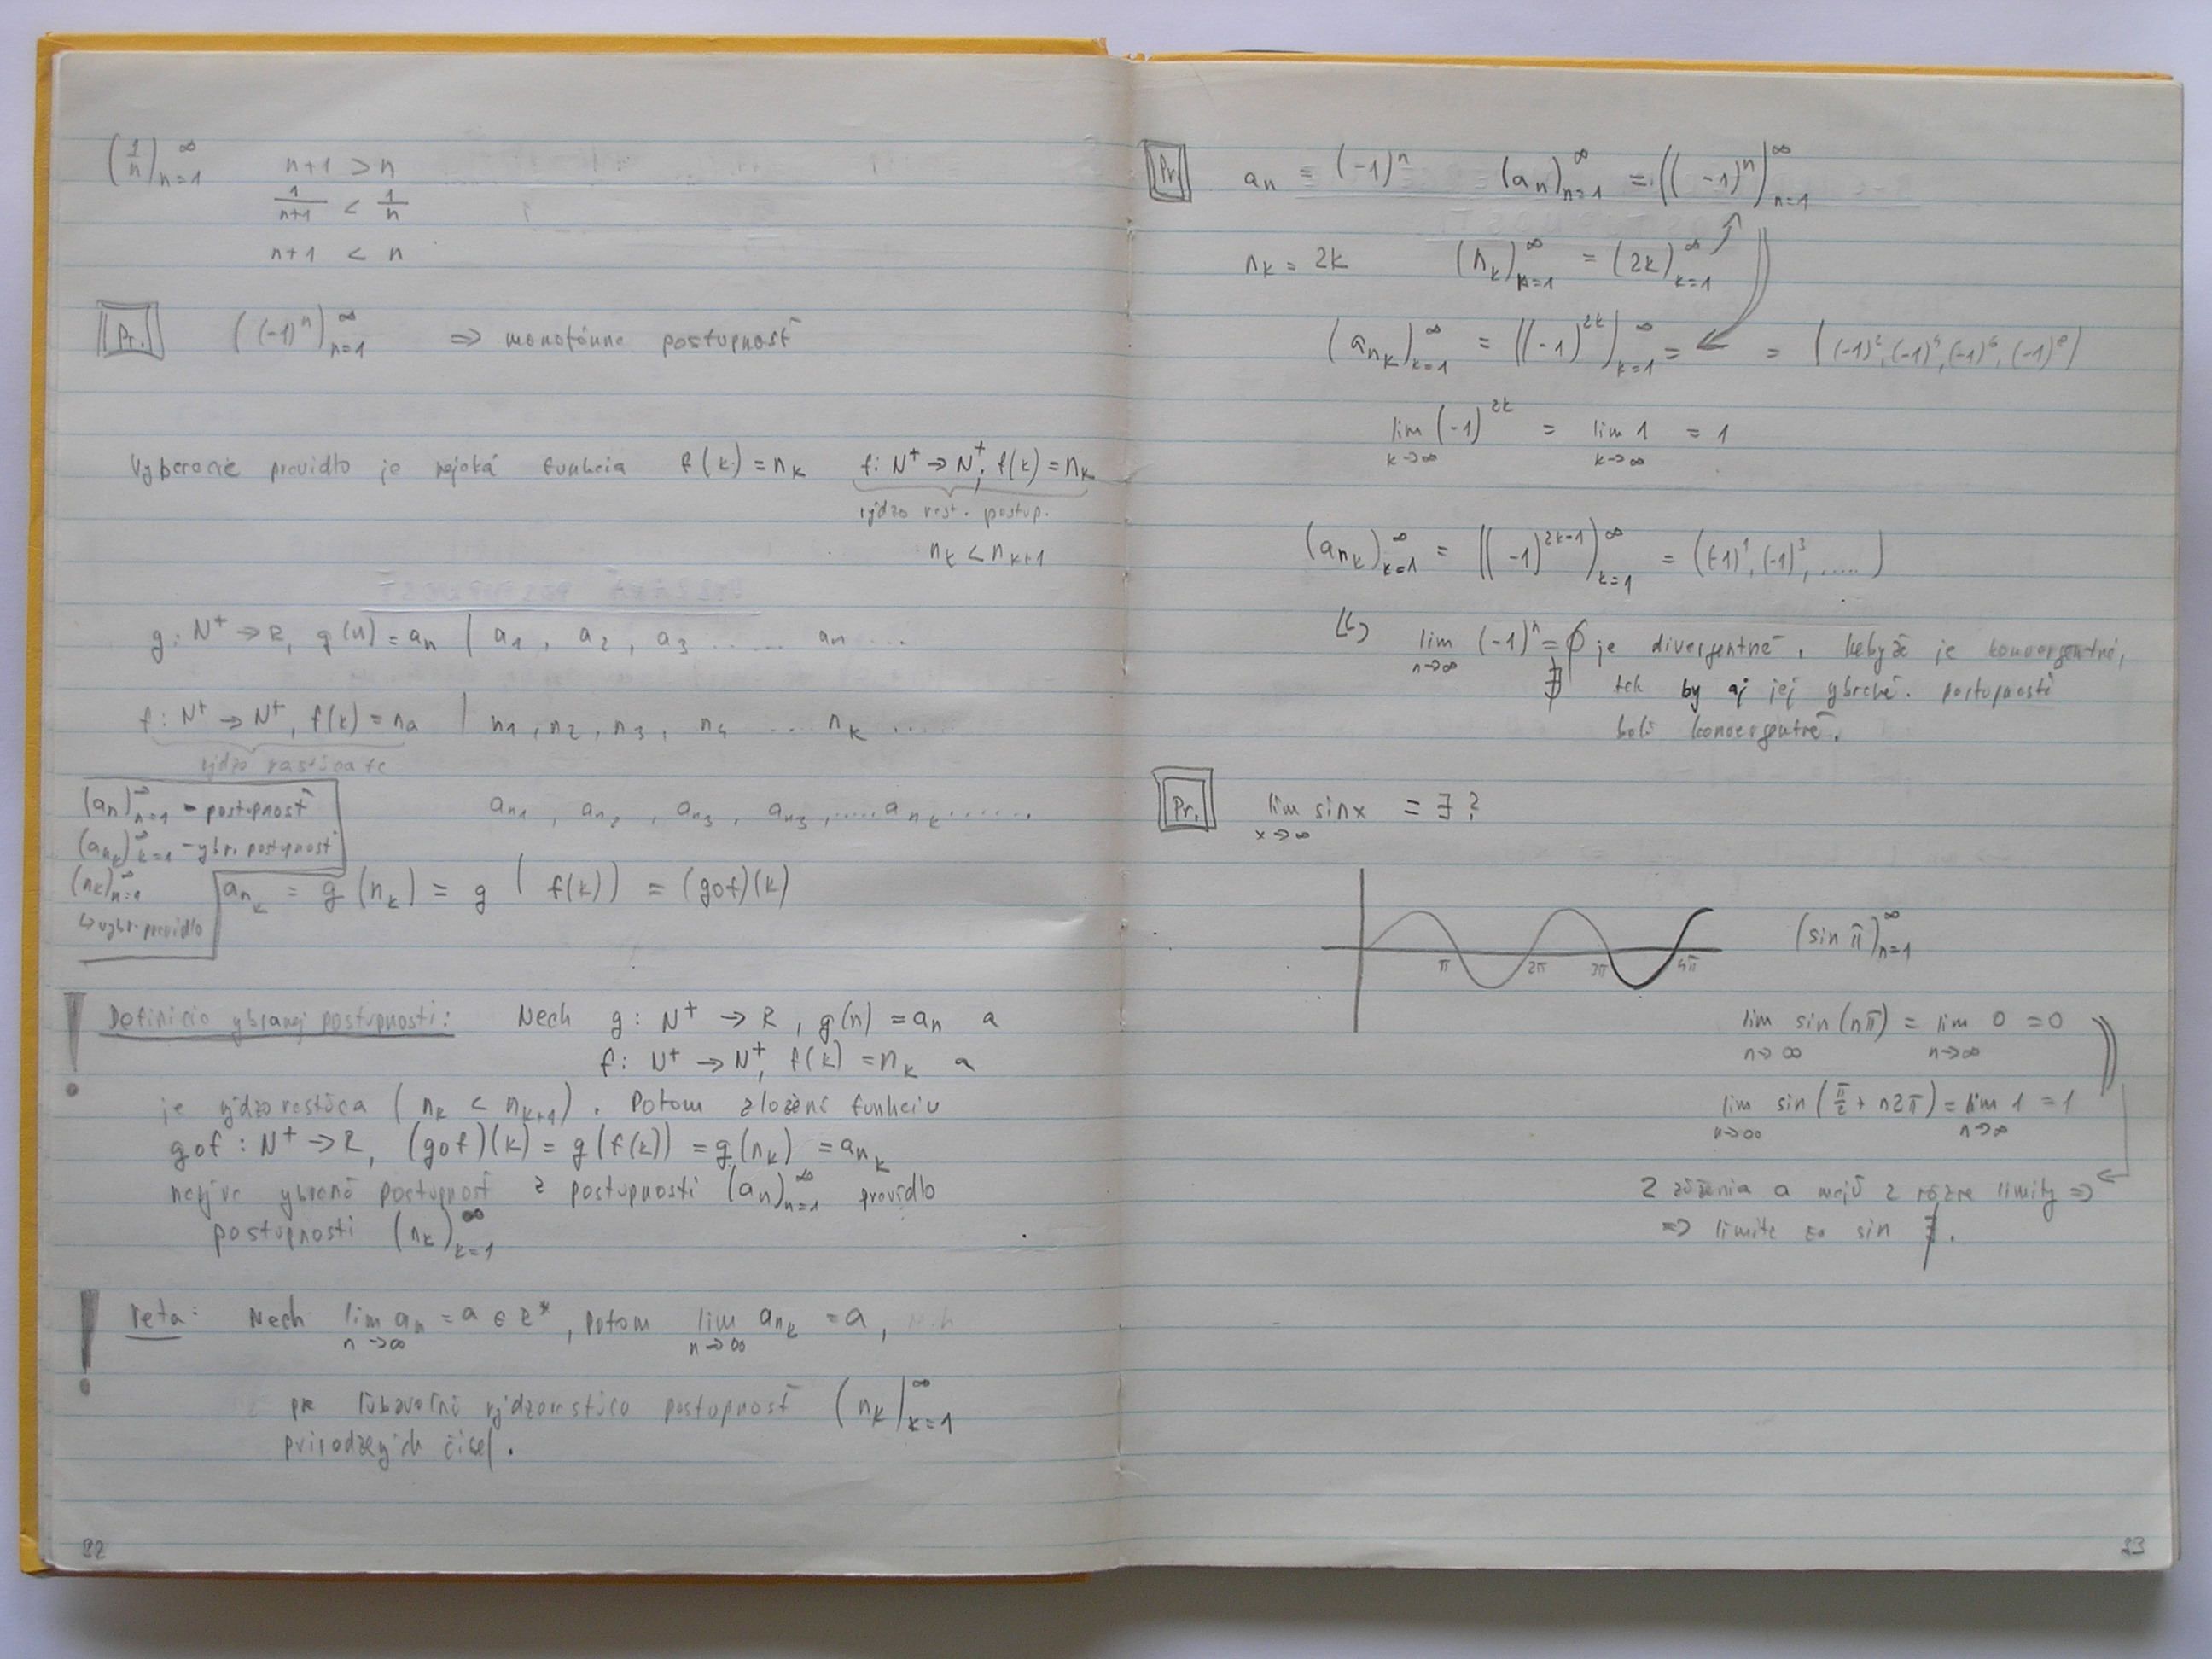 (1/n)_{n=1}^∞ n+1 > n
1/(n+1) < 1/n
n+1 < n
Pr. ((-1)^n)_{n=1}^∞ => monotónna postupnosť
pravidlo je nejaká funkcia f(k) = n_k f: N⁺ → N⁺, f(k) = n_k
rýdzo rast. postup.
n_k < n_{k+1}
g: N⁺ → R, g(n) = a_n | a_1, a_2, a_3 ...... a_n ...
f: N⁺ → N⁺, f(k) = n_a | n_1, n_2, n_3, n_4 .... n_k .....
rýdzo rastúca
(a_n)_{n=1}^∞ - postupnosť
a_{n1}, a_{n2}, a_{n3}, a_{n3}, ..... a_{nk} .......
(a_{nk})_{k=1}^∞ - ybr. postupnosť
(n_k)_{n=1}^∞
↳ vybr. pravidlo
a_{nk} = g(n_k) = g(f(k)) = (gof)(k)
! Definícia ybranej postupnosti: Nech g: N⁺ → R, g(n) = a_n a
f: N⁺ → N⁺, f(k) = n_k a
je rýdzorastúca (n_k < n_{k+1}). Potom zložená funkciu
gof: N⁺ → R, (gof)(k) = g(f(k)) = g(n_k) = a_{nk}
ybraná postupnosť z postupnosti (a_n)_{n=1}^∞ pravidlo
postupnosti (n_k)_{k=1}^∞
! Veta: Nech lim_{n→∞} a_n = a ∈ R*, potom lim_{n→∞} a_{nk} = a,
pre ľubovoľnú rýdzorastúcu postupnosť (n_k)_{k=1}^∞
čísel.
82
Pr. a_n = (-1)^n (a_n)_{n=1}^∞ = ((-1)^n)_{n=1}^∞
n_k = 2k (n_k)_{k=1}^∞ = (2k)_{k=1}^∞
(a_{nk})_{k=1}^∞ = ((-1)^{2k})_{k=1}^∞ = = ((-1)^2, (-1)^4, (-1)^6, (-1)^8)
lim_{k→∞} (-1)^{2k} = lim_{k→∞} 1 = 1
(a_{nk})_{k=1}^∞ = ((-1)^{2k-1})_{k=1}^∞ = ((-1)^1, (-1)^3, .....)
lim_{n→∞} (-1)^n = ∄ je divergentné. Kebyže je konvergentné,
tak by aj jej ybrané. postupnosti
boli konvergentné.
Pr. lim_{x→∞} sin x = ∃ ?
π 2π 3π 4π
(sin π)_{n=1}^∞
lim_{n→∞} sin(nπ) = lim_{n→∞} 0 = 0
lim_{n→∞} sin(π/2 + n2π) = lim_{n→∞} 1 = 1
2 zúženia a majú 2 rôzne limity =>
=> limita sin ∄.